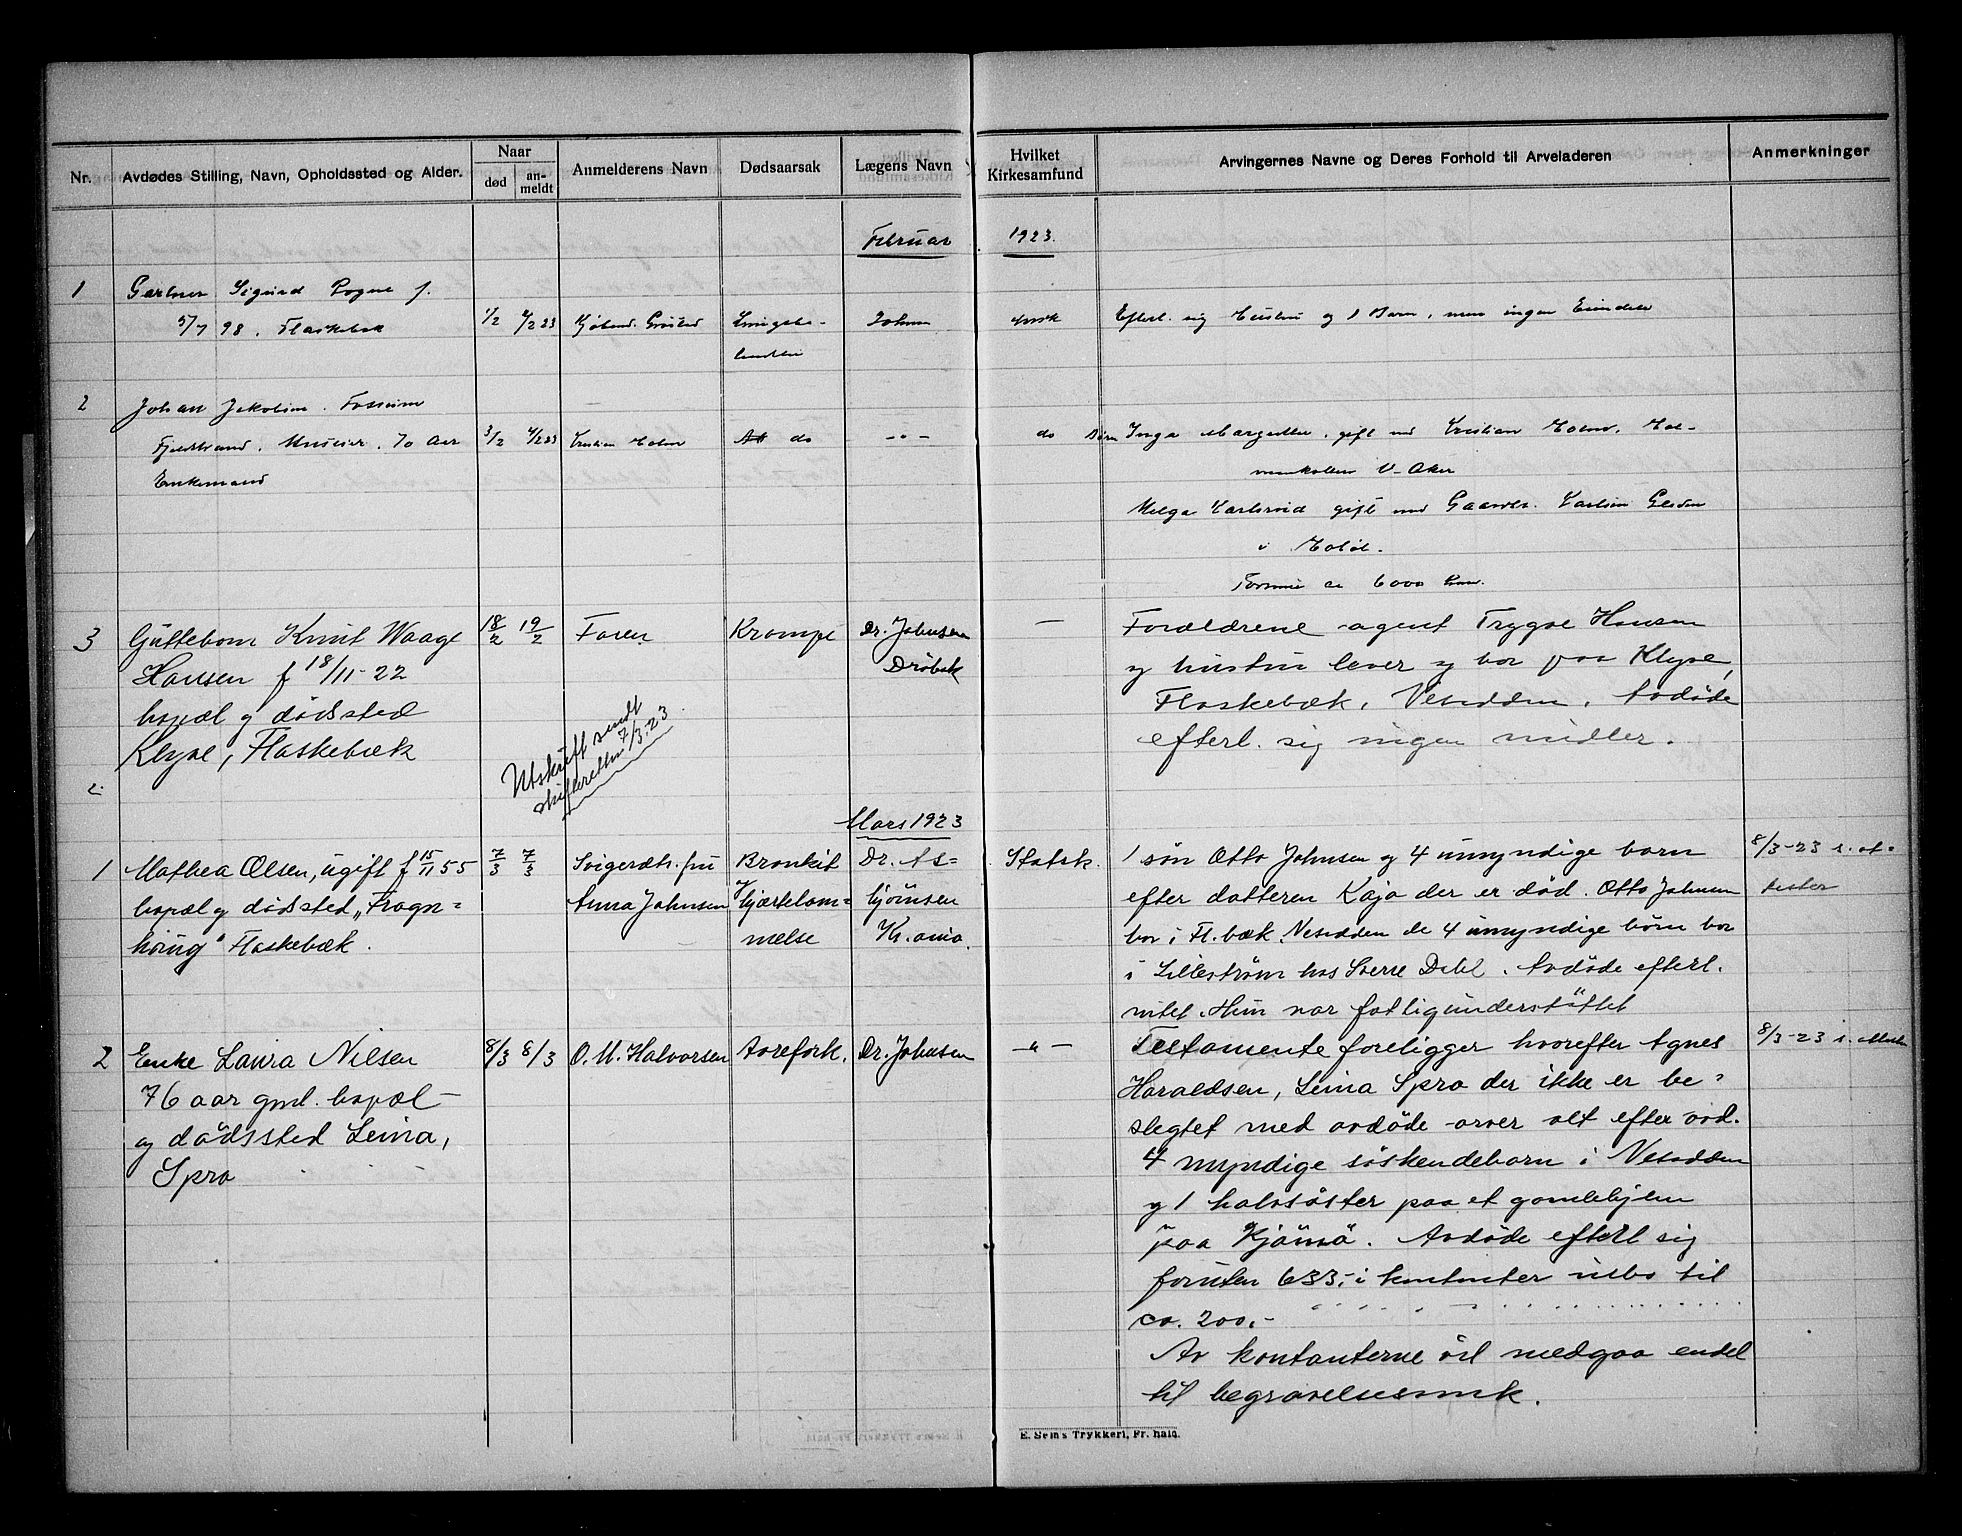 Nr.
Avdødes Stilling, Navn, Opholdssted og Alder.
Naar
død
an-
meldt
Anmelderens Navn
Dødsaarsak
Lægens Navn
Hvilket
Kirkesamfund
Arvingernes Navne og Deres Forhold til Arveladeren
Anmerkninger
Februar 1923.
1
Gartner Sigurd f.
5/7 98. Flaskebæk
1/2
Johnsen
Efterl. sig Hustru og 1 Barn, men ingen Eiendele
2
Johan Jakobsen. Fossum
Fjeldstrand. Huseier. 70 Aar
Enkemand
3/2 4/2 23
Kristian Holm
do
-"-
do
Børn Inga Margrethe, gift med Kristian Holm. Hol-
menkollen V. Aker
Helga gift med Gaardbr.
i Hobøl.
Formue ca 6000 kron.
3
Guttebarn Knut Waage
Hansen f 18/11-22
bopæl og dödsted
Klype, Flaskebæk
18/2 19/2
Faren
Krampe
Dr. Johnsen
Dröbak
—
Forældrene agent Trygve Hansen
og hustru lever og bor paa Klype,
Flaskebæk, Nesodden. Avdöde
efterl. sig ingen midler.
Utskrift sendt
skifteretten 7/3.23
Mars 1923
1
Mathea Olsen, ugift f 15/11 55
bopæl og dödsted "Fragn-
haug" Flaskebæk.
7/3 7/3
Svigerdtr. fru
Anna Johnsen
Bronkit
og hjertelam-
melse
Dr. As-
björnsen
Kr.ania.
Statsk.
1 sön Otto Johnsen og 4 umyndige barn
efter datteren Kaja der er död. Otto Johnsen
bor i Fl.bæk, Nesodden de 4 umyndige börn bor
i Lilleström hos Sverre Dahl. Avdöde efterl.
intet. Hun var fattigunderstöttet
8/3-23 s. at-
tester
2
Enke Laura Nilsen
76 aar gml. bopæl
og dödssted Leina,
Spro
8/3 8/3
O. M. Halvorsen
Aarefork.
Dr. Johnsen
-"-
Testamente foreligger hvorefter Agnes
Haraldsen, Leina Spro der ikke er be-
slegtet med avdöde arver alt efter avd.
4 myndige söskendebarn i Nesodden
og 1 halvsöster paa et gamlehjem
paa Tjömö. Avdöde efterl sig
foruten 633,- i kontanter indbo til
ca. 200,-
Av kontanterne vil medgaa endel
til begravelsesomk.
8/3-23 s.
E. Sem's Trykkeri, Fr.hald.